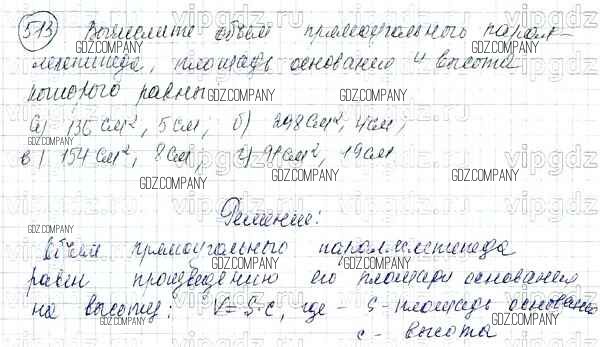 513 Вычислите объем прямоугольного парал-
лелепипеда, площадь основанием и высота
которого равны
а) 136 см², 5 см; б) 298 см², 4 см;
в) 154 см², 8 см; г) 91 см², 19 см
Решение:
Объем прямоугольного параллелепипеда
равен произведению его площади основанием
на высоту: V = S·c, где - S - площадь основания
c - высота
GDZ.COMPANY
vipgdz.ru